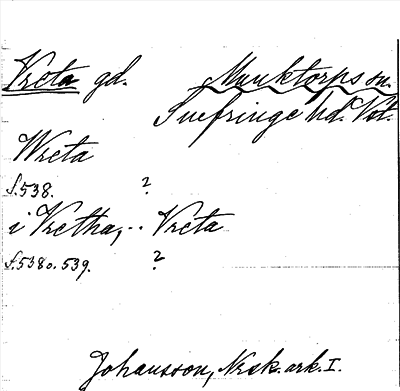 Vreta gd. Munktorps sn.
Snefringe hd. Vstl.
Wreta
s. 538. ?
i Vretha, .. Vreta
s. 538 o. 539. ?
Johansson, Nrsk. ark. I.